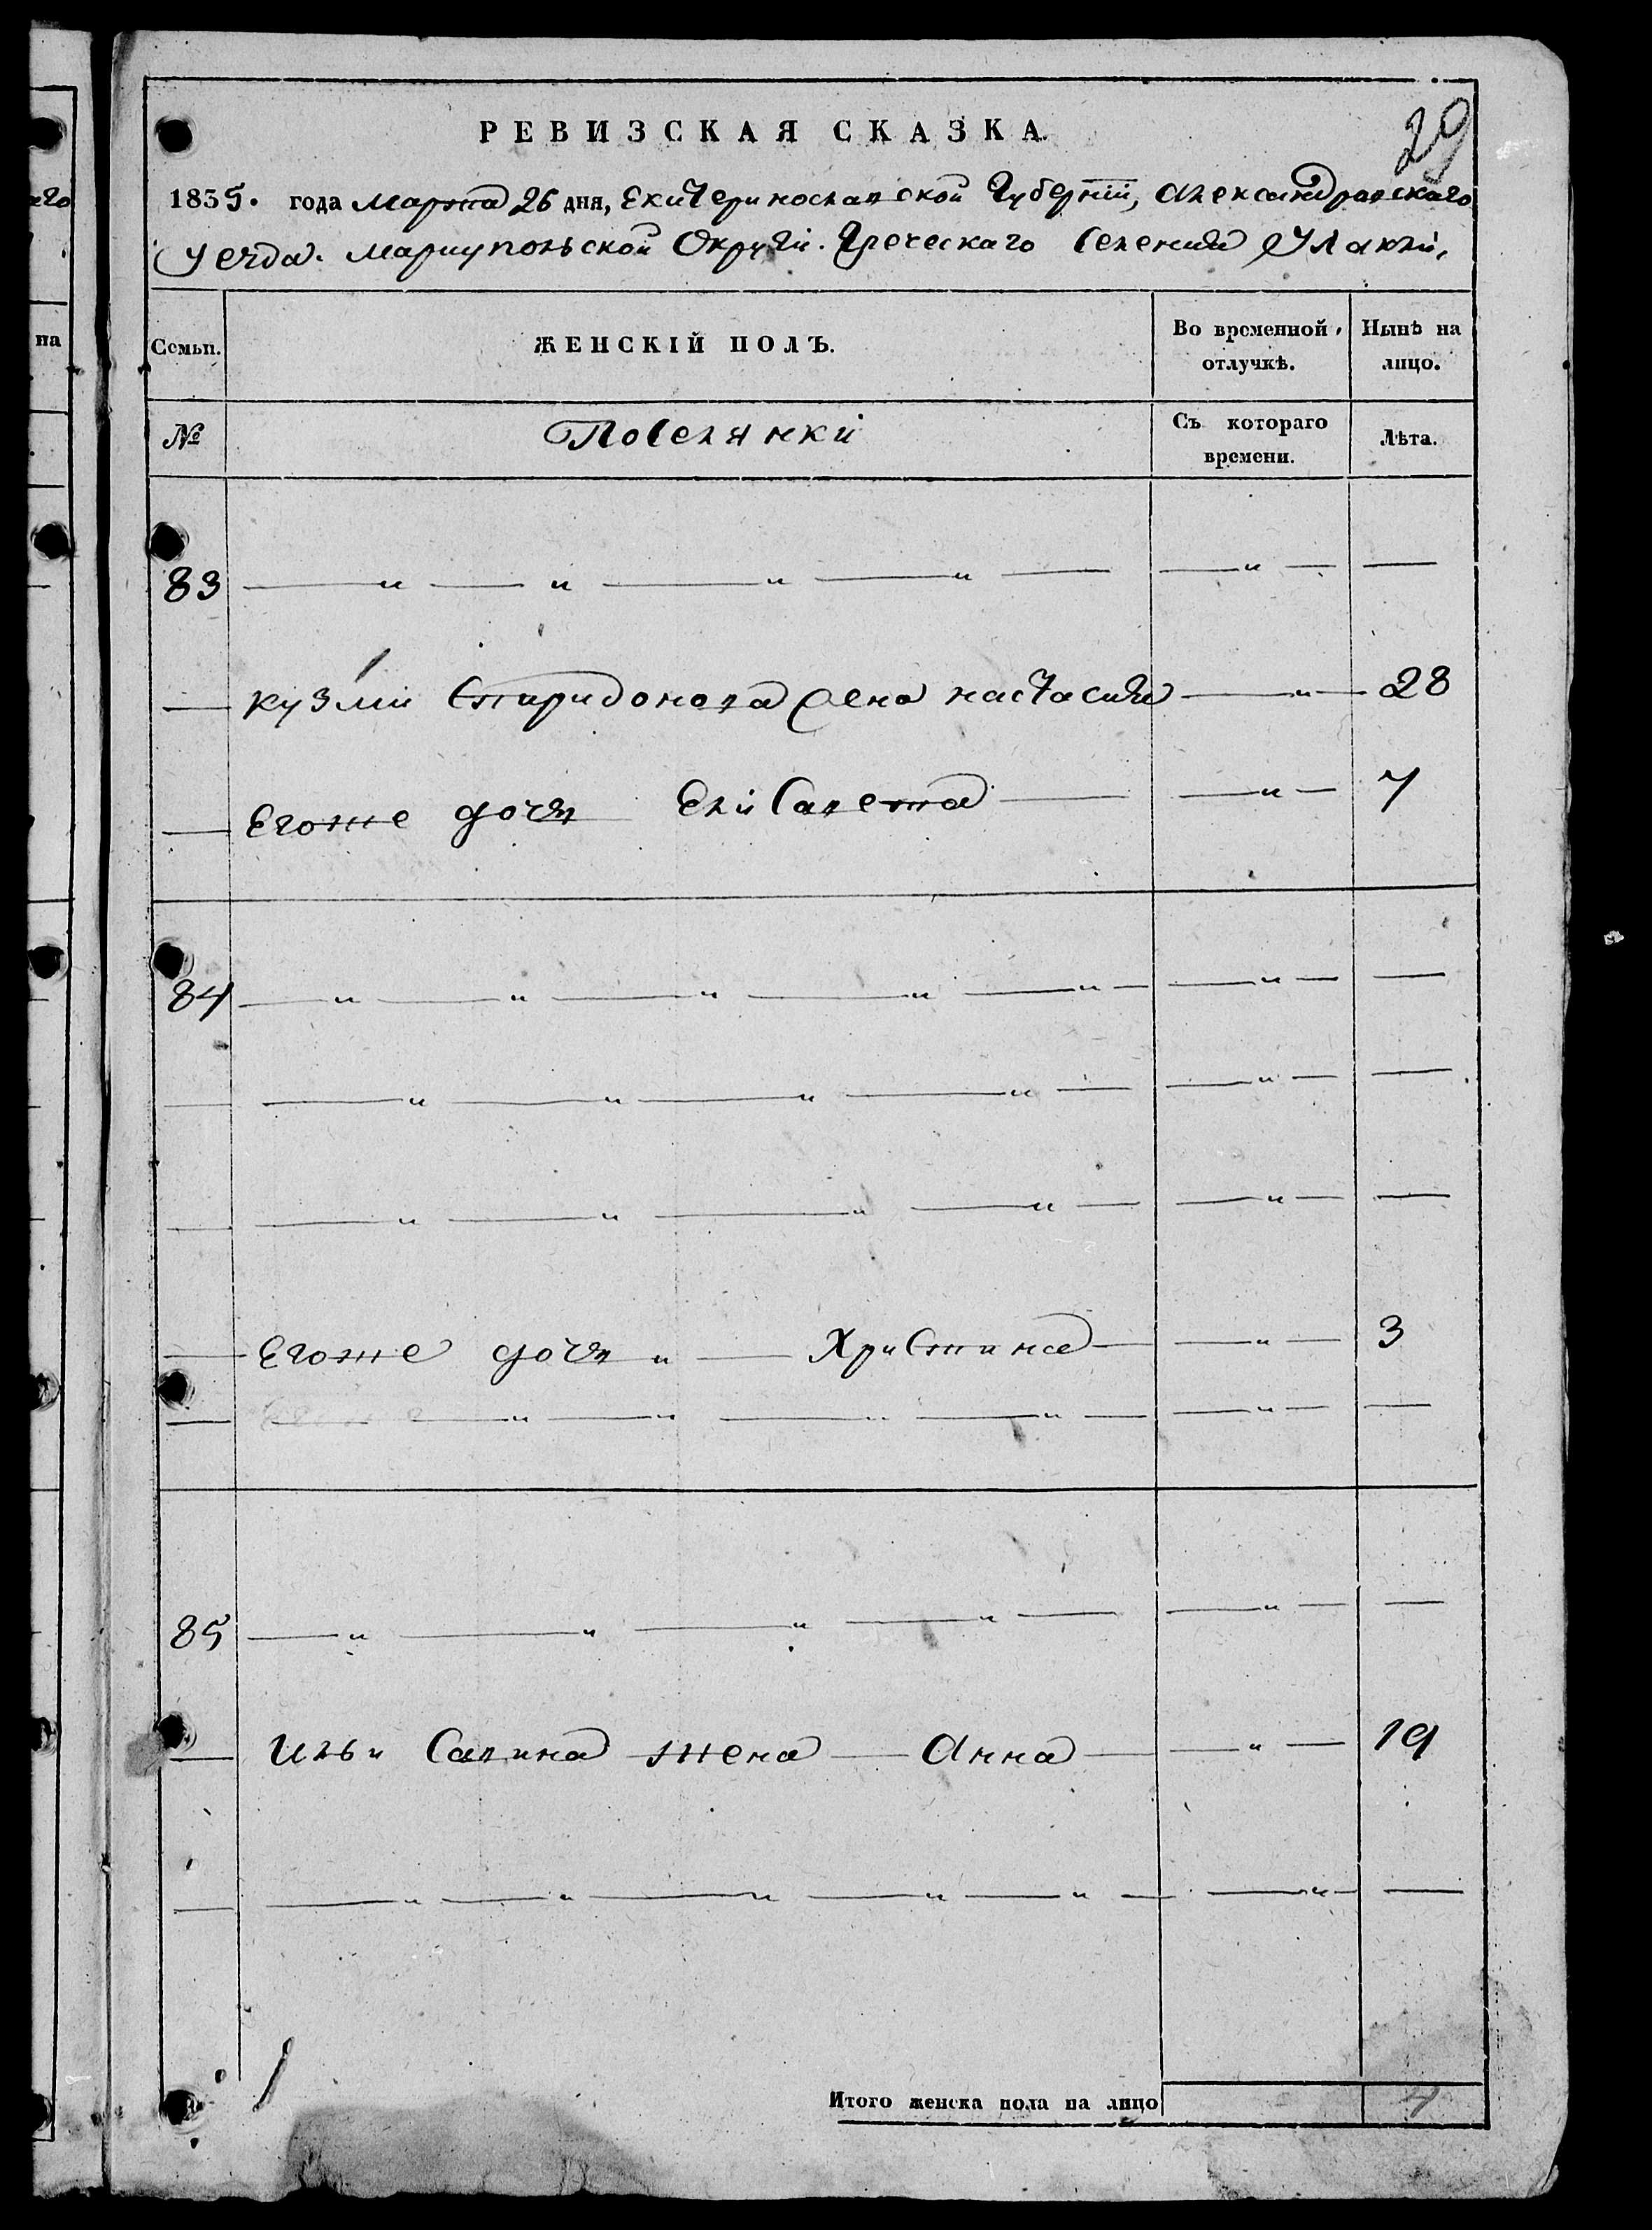 29
РЕВИЗСКАЯ СКАЗКА.
1835. года Марта 26 дня, Екатеринославской Губернии, Александравскаго
Уезда. Мариупольской Округи. Греческаго Селения Улаклы,
Семьи. ЖЕНСКІЙ ПОЛЪ. Во временной отлучкѣ. Нынѣ на лицо.
№ Поселянки Съ котораго времени. Лѣта.
83 — „ — „ — „ — „ — — „ — —
— Кузми Спиридонова жена Настасия — „ — 28
— Егоже дочь Елисавета — — „ — 7
84 — „ — „ — „ — „ — „ — — „ — —
— — „ — „ — „ — „ — — „ — —
— — „ — „ — „ — „ — — „ — —
— Егоже дочь „ — Христина — — „ — 3
— — „ — „ — „ — „ — — „ — —
85 — „ — „ — „ — „ — — „ — —
— Ильи Савина жена — Анна — — „ — 19
— — „ — „ — „ — „ — „ — — „ — —
Итого женска пола на лицо 4
аго
на